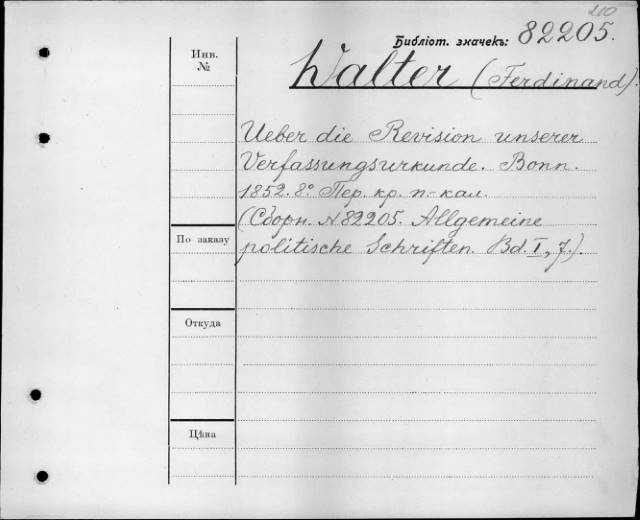 210
Библіот. значекъ: 82205.
Инв.
№
Walter (Ferdinand).
Ueber die Revision unserer
Verfassungsurkunde. Bonn.
1852. 8º. Пер. кр. п.-кал.
(Сборн. №82205. Allgemeine
politische Schriften. Bd. I, 7.).
По заказу
Откуда
Цѣна